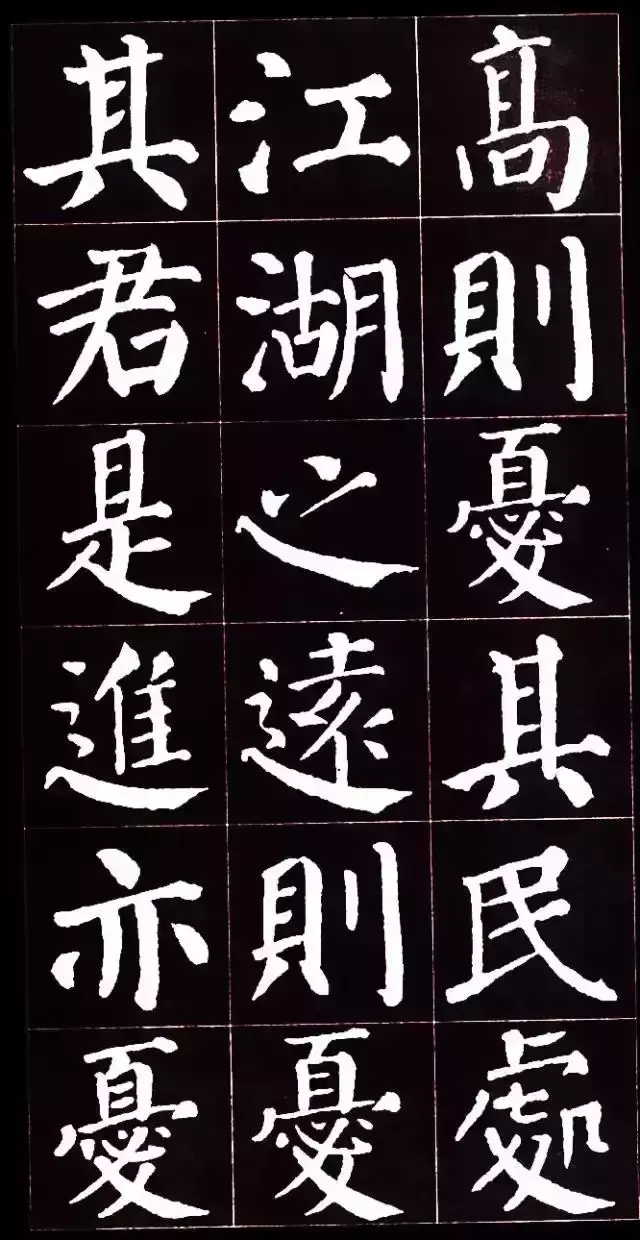 高則憂其民處
江湖之遠則憂
其君是進亦憂